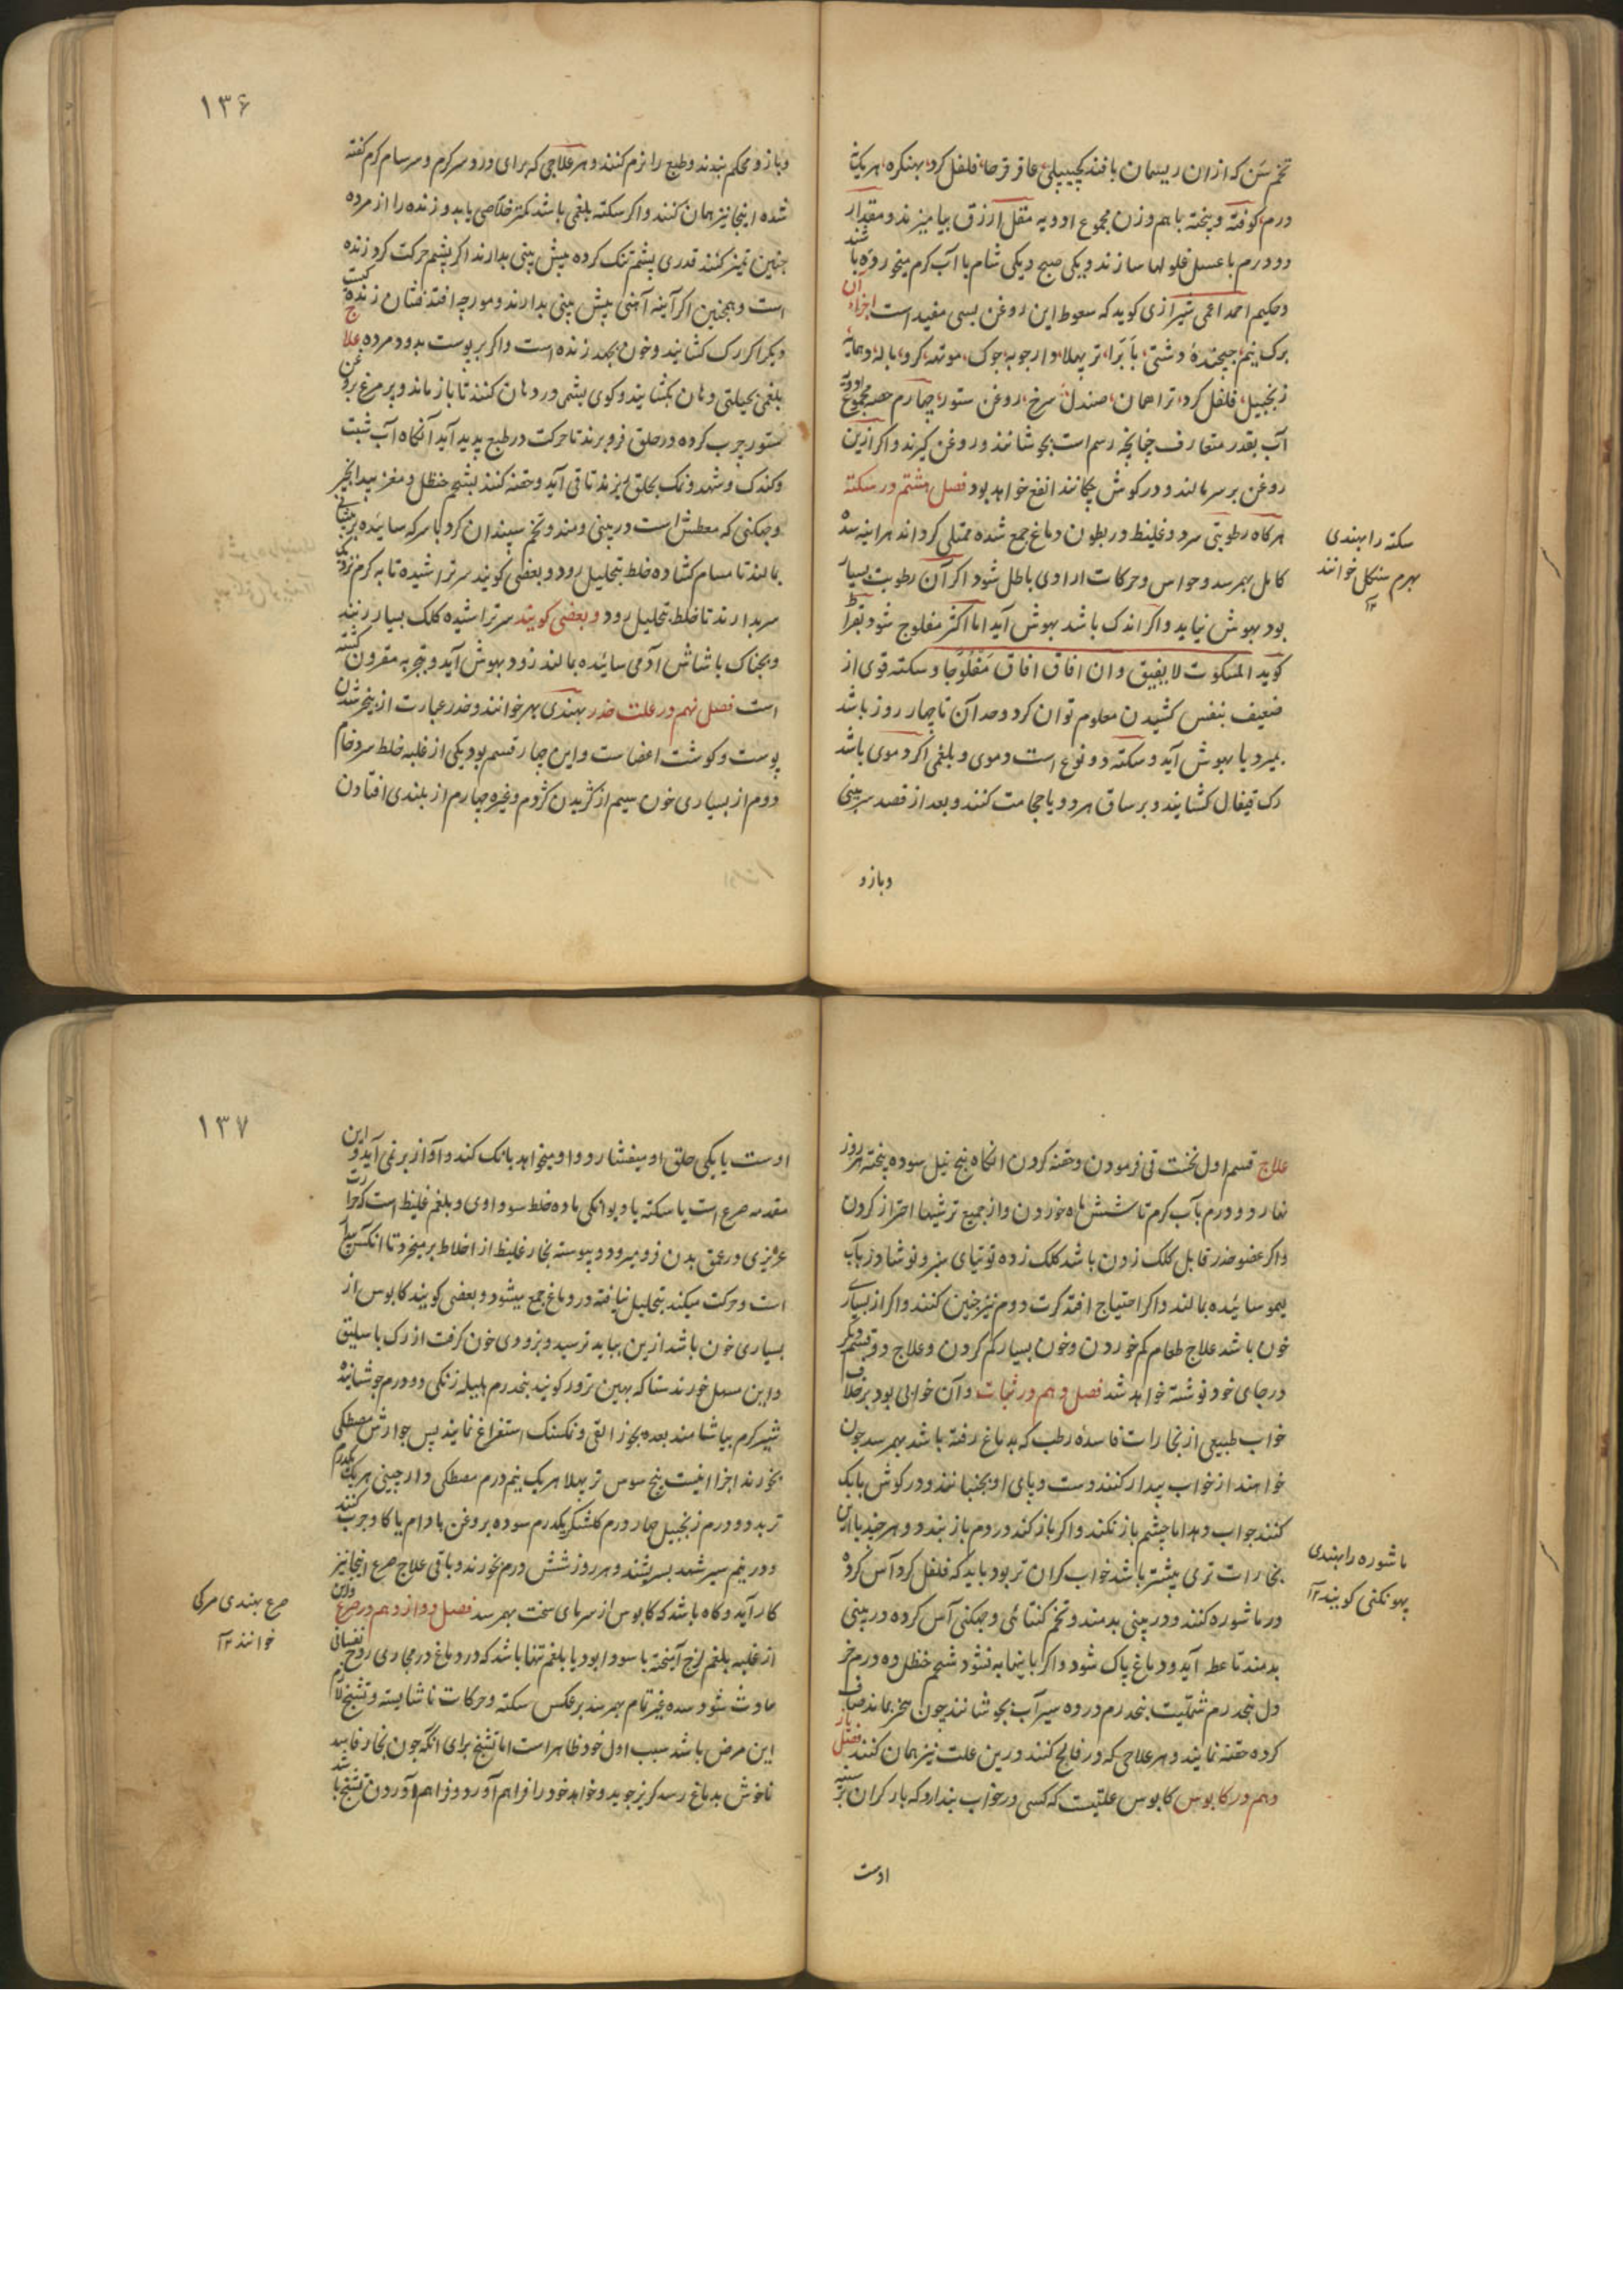 تخم سن که از ان ریسمان بافند کچیپلی عاقرقرحا فلفل کرد بهنکره هر یک
درم کوفته و بیخته باهم وزن مجموع ادویه مقل ازرق بیامیزند و مقدار
دو درم با عسل غلولها سازند و یکی صبح و یکی شام با آب کرم میخورده باشند
و حکیم احمد اعمی شیرازی کوید که سعوط این روغن بسی مفید است اجزاء ان
برک نیم دشتی تربهلا
زنجبیل فلفل کرد صندل سرخ روغن ستور چهارم حصه مجموع ادویه
آب بقدر متعارف چنانچه رسم است بجوشانند و روغن کیرند و اکر ازین
روغن بر سر مالند و در کوش چکانند انفع خواهد بود فصل هشتم در سکته
هرکاه رطوبتی سرد و غلیظ در بطون دماغ جمع شده ممتلی کرداند هراینه سده
کامل بهمرسد و حواس و حرکات ارادی باطل شود اکر آن رطوبت بسیار
بود بهوش نیاید و اکر اندک باشد بهوش آید اما اکثر مفلوج شود بقراط
کوید المسکوت لا یفیق و ان افاق افاق مفلوجا و سکته قوی از
ضعیف بنفس کشیدن معلوم توان کرد و حد آن تا چهار روز باشد
بمیرد یا بهوش آید و سکته دو نوع است دموی و بلغمی اکر دموی باشد
رک قیفال کشایند و بر ساق هر دو پا حجامت کنند و بعد از فصد سر بینی
و بازو
سکته را بهندی
خوانند
۱۳۶
و بازو محکم بندند و طبع را نرم کنند و هر علاجی که برای درد سر کرم و سرسام کرم کفته
شده اینجا نیز همان کنند و اکر سکته بلغمی باشد کمتر خلاصی یابد و زنده را از مرده
چنین تمیز کنند قدری پشم تنک کرده پیش بینی بدارند اکر پشم حرکت کرد زنده
است و همچنین اکر آینه آهنی پیش بینی بدارند و مورچه افتد نشان زنده کیست
و بکر اکر رک کشایند و خون بجهد زنده است و اکر بر پوست بدود مرده علاج
بلغمی بحیلتی دهان بکشایند و کوی پشمی در دهان کنند تا باز ماند و پر مرغ بروغن
ستور چرب کرده در حلق فرو برند تا حرکت در طبع پدید آید آنکاه آب شبت
و کندک و شهد و نمک بحلق بریزند تا قی آید و حقنه کنند بشحم حنظل و مغز بیدانجیر
و چکنی که معطش است در بینی دمند و تخم سپندان کرد با سرکه سائیده بر پیشانی
بمالند تا مسام کشاده خلط بتحلیل رود و بعضی کویند سر تراشیده تابه کرم نزدیک
سر بدارند تا خلط بتحلیل رود و بعضی کویند سر تراشیده کلک بسیار زنند
و بچناک با شاش آدمی سائیده بمالند زود بهوش آید و بتجربه مقرون کشته
است فصل نهم در علت خدر بهندی بهر خوانند و خدر عبارت از بیخبر شدن
پوست و کوشت اعضاست و این چهار قسم بود یکی از غلبه خلط سرد خام
دوم از بسیاری خون سیم از کزیدن کژدم و غیره چهارم از بلندی افتادن
علاج قسم اول نخست قی فرمودن و حقنه کردن انکاه بیخ نیل سوده بیخته هر روز
نهار دو درم بآب کرم تا شش ماه خوردن و از جمیع ترشیها احتراز کردن
و اکر عضو خدر قابل کلک زدن باشد کلک زده توتیای سبز و نوشادر بآب
لیمو سائیده بمالند و اکر احتیاج افتد کرت دوم نیز چنین کنند و اکر از بسیاری
خون باشد علاج طعام کم خوردن و خون بسیار کم کردن و علاج دو قسم دیکر
در جای خود نوشته خواهد شد فصل دهم در ثبات و آن خوابی بود بر خلاف
خواب طبیعی از بخارات فاسده رطب که بدماغ رفته باشد بهمرسد چون
خواهند از خواب بیدار کنند دست و پای او بجنبانند و در کوش بانک
کنند جواب دهد اما چشم باز نکند و اکر باز کند در دم باز بندد و هر چند با این
بخارات تری بیشتر باشد خواب کران تر بود باید که فلفل کرد آس کرده
در ماشوره کنند و در بینی بدمند و تخم کتائی و چکنی آس کرده در بینی
بدمند تا عطسه آید و دماغ پاک شود و اکر باینها به نشود شحم حنظل ده درم خر
دل پنجدرم شبت پنجدرم در ده سیر آب بجوشانند چون سه سیر بماند صاف
کرده حقنه نمایند و هر علاجی که در فالج کنند درین علت نیز همان کنند فصل یاز
دهم در کابوس کابوس علتیست که کسی در خواب پندارد که بار کران بر سینه
اوست
ماشوره را بهندی
پهونکنی کویند ۱۲
۱۳۷
اوست یا یکی حلق او میفشارد و او میخواهد بانک کند و آواز بر نمی آید و این
مقدمه صرع است یا سکته یا دیوانکی ماده خلط سوداوی و بلغم غلیظ است که حرارت
غریزی در عمق بدن فرو میرود و پیوسته بخار غلیظ از اخلاط بر میخیزد تا آنکس
است و حرکت میکند بتحلیل نیافته در دماغ جمع میشود و بعضی کویند کابوس از
بسیاری خون باشد ازین بباید ترسید و بزودی خون کرفت از رک باسلیق
و این مسهل خورند سنا که بهین ترور کویند پنجدرم هلیله زنکی دو درم جوشانیده
شیر کرم بیاشامند بعده بجوز القی و نمکسنک استفراغ نمایند پس جوارش مصطکی
بخورند اجزا اینست بیخ سوس تربهلا هر یک نیم درم مصطکی دارچینی هر یک یکدرم
تربد دو درم زنجبیل چهار درم کلشکر یکدرم سوده بروغن بادام یا کاو چرب کنند
و در نیم سیر شهد بسرشند و هر روز شش درم بخورند و باقی علاج صرع اینجا نیز
کار آید و کاه باشد که کابوس از سرمای سخت بهمرسد فصل دوازدهم در صرع و این
از غلبه بلغم لزج آمیخته با سودا بود یا بلغم تنها باشد که در دماغ در مجاری روح نفسانی
حادث شود سده غیر تمام بهمرسد بر عکس سکته و حرکات ناشایسته و تشنج لازم
این مرض باشد سبب اول خود ظاهر است اما تشنج برای آنکه چون بخار فاسد
ناخوش بدماغ رسد کریز جوید و خواهد خود را فراهم آورد و فراهم آوردن تشنج باشد
صرع بهندی مرکی
خوانند ۱۲